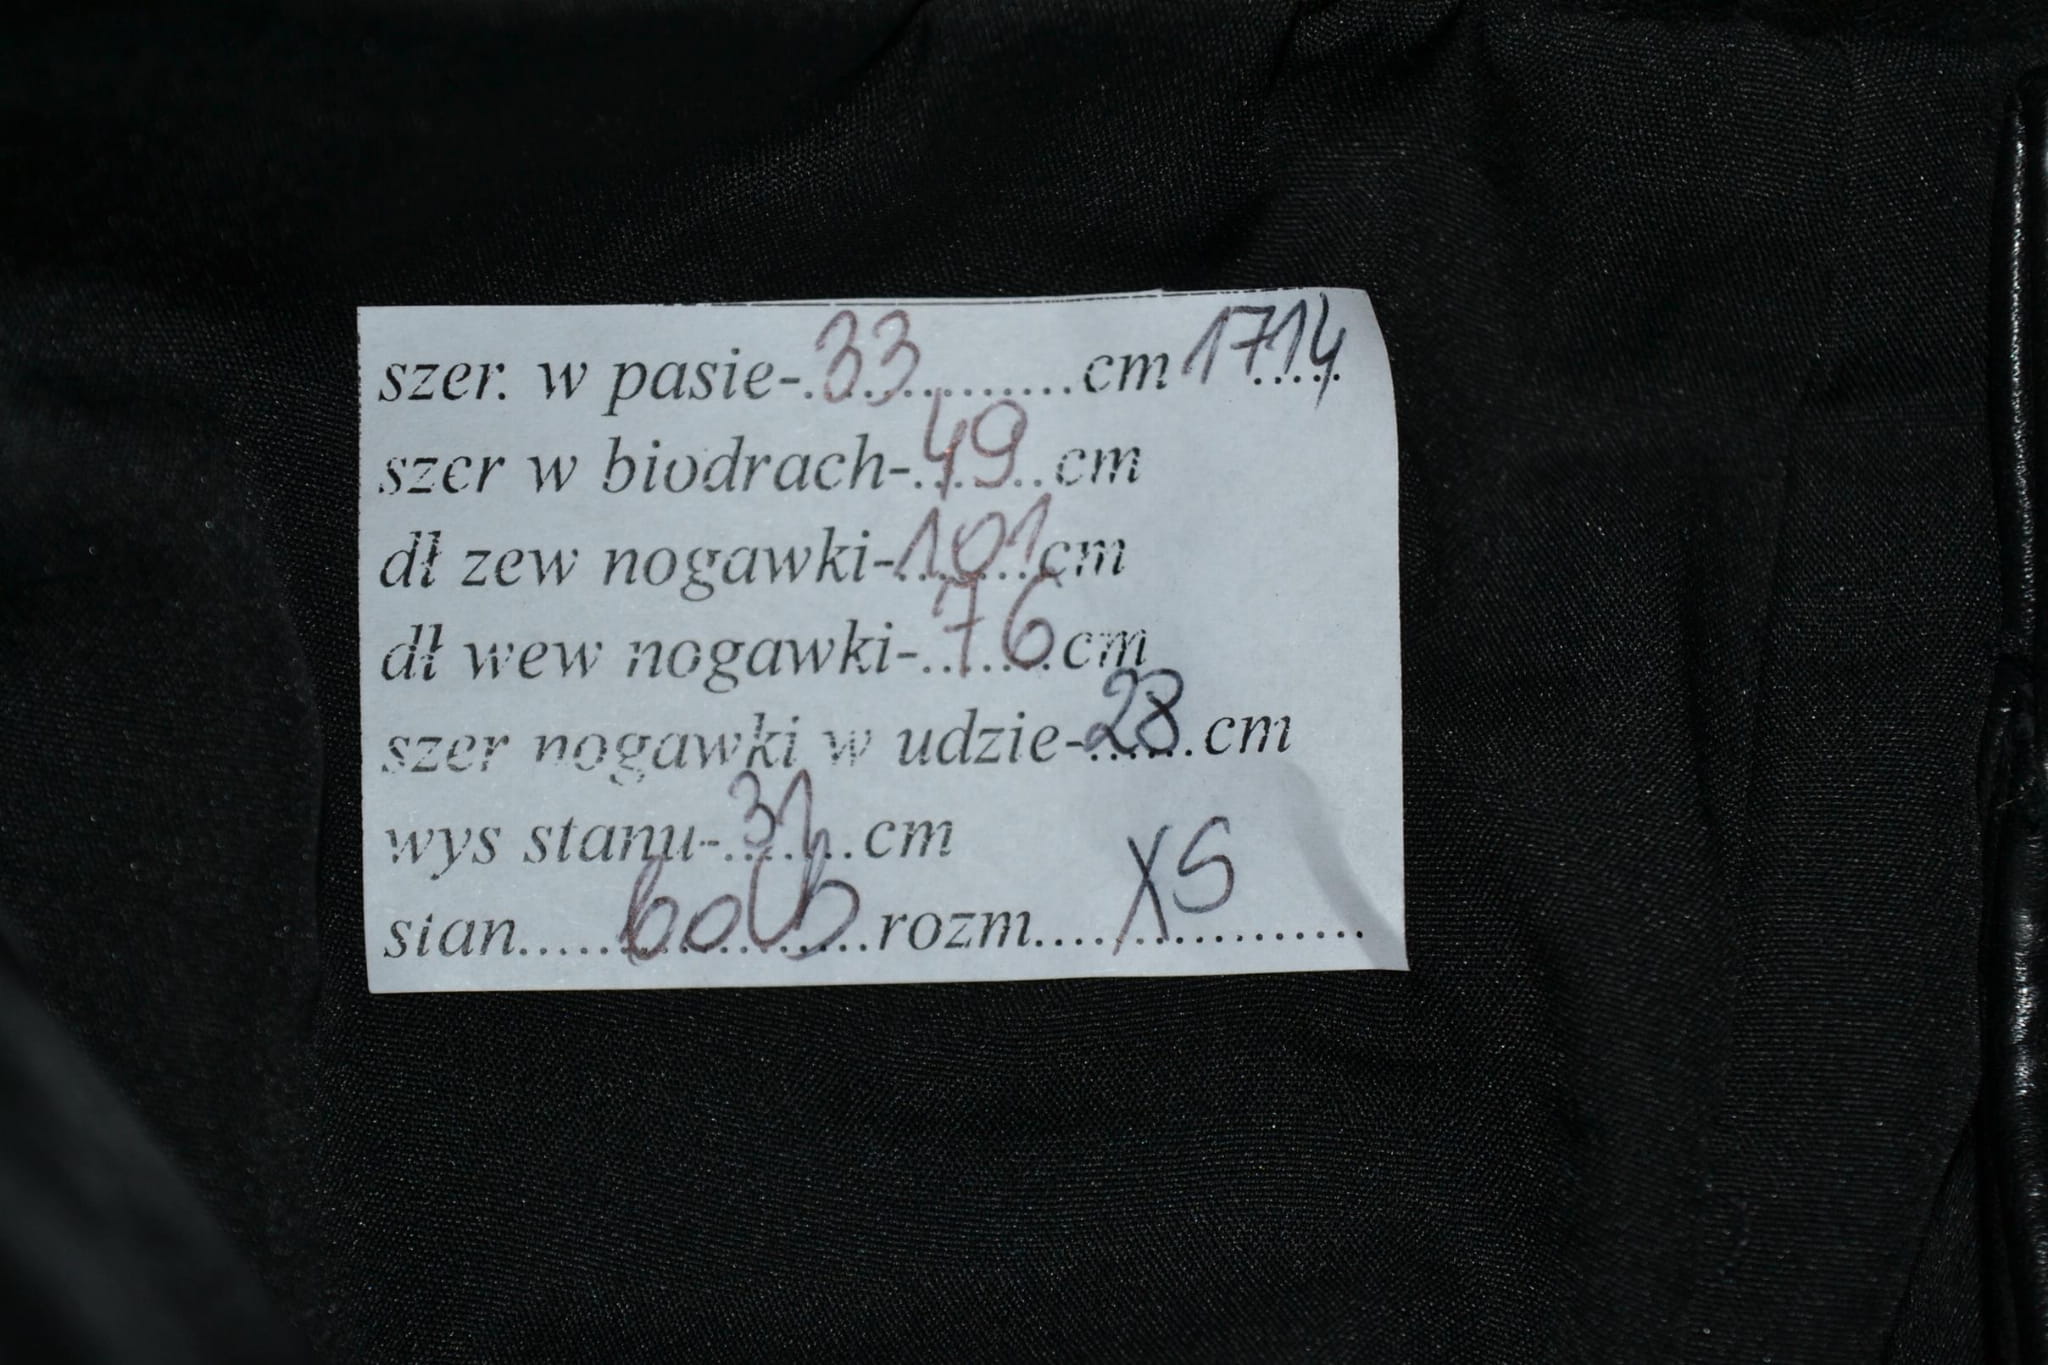 szer. w pasie-.33..........cm 1714
szer w biodrach-.49..cm
dł zew nogawki-101cm
dł wew nogawki-..76.cm
szer nogawki w udzie-28..cm
wys stanu-..31..cm
sian...............rozm....XS.............